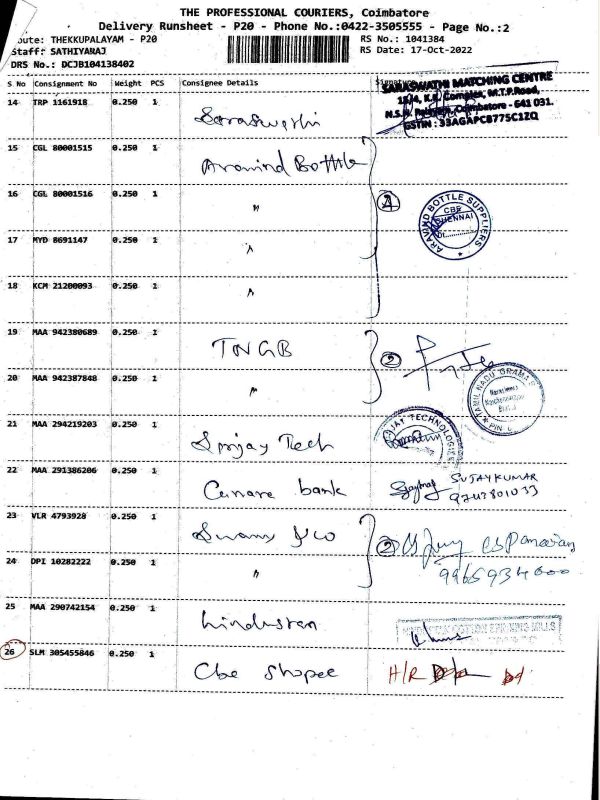 THE PROFESSIONAL COURIERS, Coimbatore
Delivery Runsheet - P20 - Phone No.:0422-3505555 - Page No.:2
oute: THEKKUPALAYAM - P20
RS No.: 1041384
Staff: SATHIYARAJ
RS Date: 17-Oct-2022
DRS No.: DCJB104138402
S No Consignment No Weight PCS Consignee Details Signature
SARASWATHI MATCHING CENTRE
Complex, M.T.P.Road,
Coimbatore - 641 031.
GSTIN : 33AGAPC8775C1ZQ
14 TRP 1161918 0.250 1 Saraswathi
15 CGL 80001515 0.250 1 Aravind Bottle
16 CGL 80001516 0.250 1 "
ARAVIND BOTTLE SUPPLIERS
CBE
CHENNAI
17 MYD 8691147 0.250 1 "
18 KCM 21200093 0.250 1 "
19 MAA 942380689 0.250 1 TNGB 2
20 MAA 942387848 0.250 1 "
TAMIL NADU GRAMA
PIN
21 MAA 294219203 0.250 1 Smjay Tech
JAY TECHNOLOGIES
22 MAA 291386206 0.250 1 Canara bank SUJAYKUMAR
23 VLR 4793928 0.250 1 Swamy 2
24 DPI 10282222 0.250 1 "
25 MAA 290742154 0.250 1 hindustan
26 SLM 305455846 0.250 1 Cbe Shopee H/R